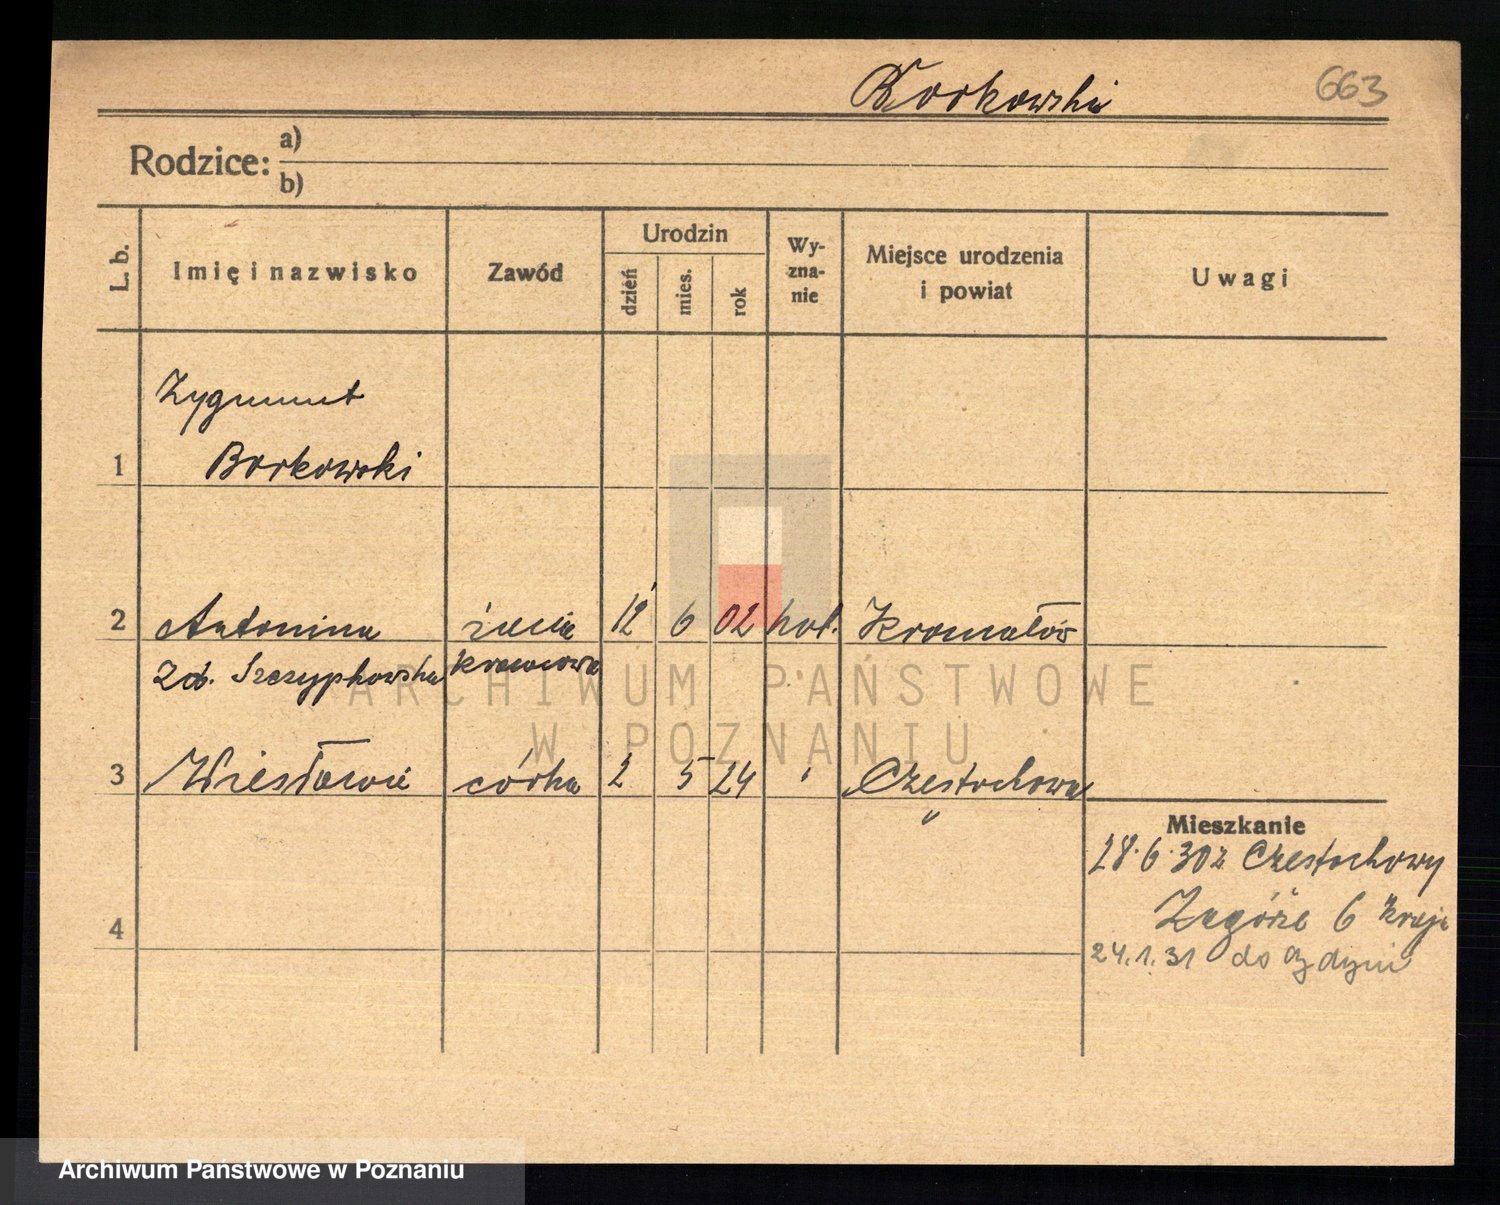 Borkowski 663
Rodzice: a)
b)
L. b. Imię i nazwisko Zawód Urodzin dzień mies. rok Wy-zna-nie Miejsce urodzenia i powiat Uwagi
Zygmunt
1 Borkowski
2 Antonina żona 12 6 02 kat. Kromałów
zd. Szczypkowska krawcowa
ARCHIWUM PAŃSTWOWE
W POZNANIU
3 Wiesława córka 2 5 24 " Częstochowa
"
Mieszkanie
28.6.30 z Częstochowy
4 Zagórze 6
24.1.31 do Gdyni
Archiwum Państwowe w Poznaniu